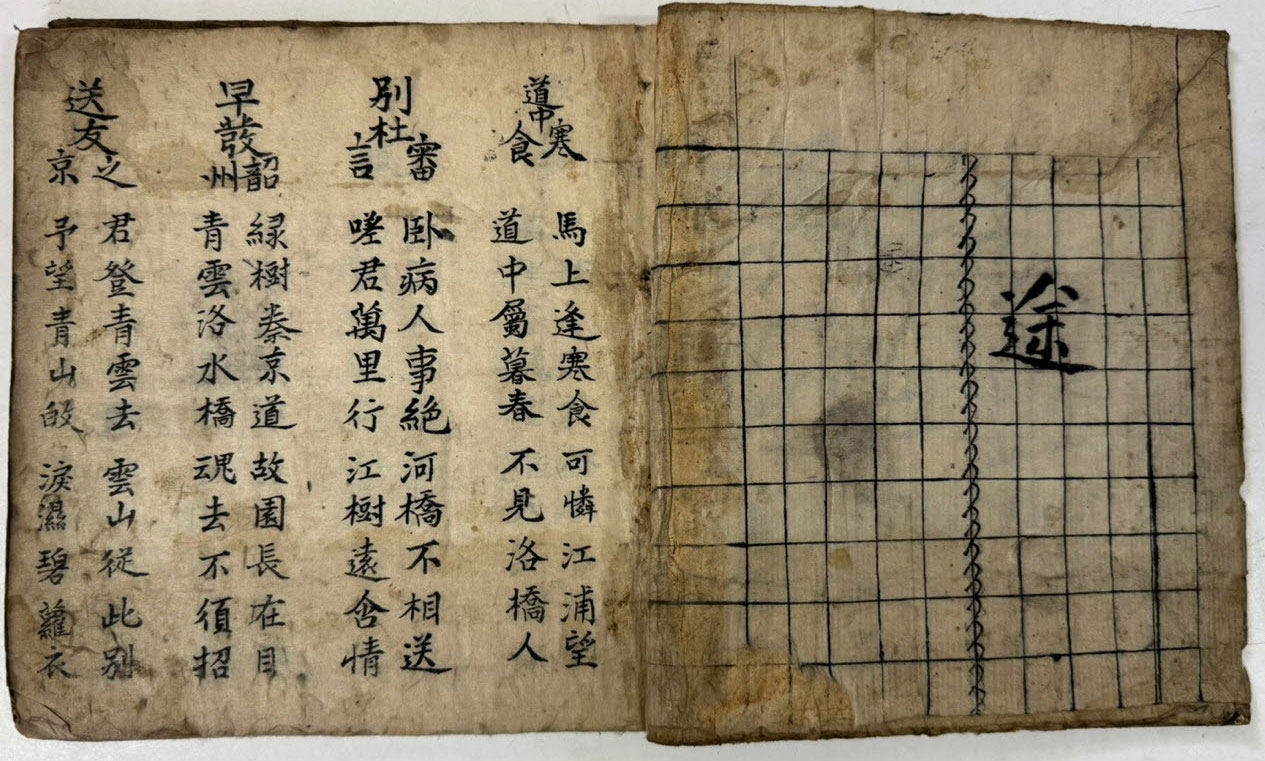 途
道中寒食
馬上逢寒食 可憐江浦望
道中屬暮春 不見洛橋人
別杜審言
卧病人事絶 河橋不相送
嗟君萬里行 江樹遠含情
早發韶州
緑樹秦京道 故園長在目
青雲洛水橋 魂去不須招
送友之京
君登青雲去 雲山從此別
予望青山皈 淚濕碧蘿衣